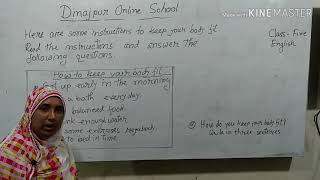 Made with KINEMASTER
Dinajpur Online School
Here are some instructions to keep your body fit.
Read the instructions and answer the
following questions.
Class - Five
English
How to keep your body fit
up early in the morning
a bath everyday
balanced food
enough water
some exercises regularly
to bed in time
How do you keep your body fit?
Write in three sentences